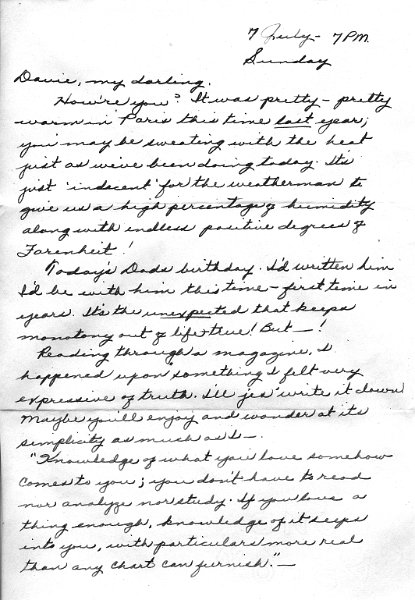 7 July - 7PM
Sunday
Davie, my darling.
How're you? It was pretty - pretty
warm in Paris this time last year;
you may be sweating with the heat
just as we've been doing today. Its
just 'indecent' for the weatherman to
give us a high percentage of humidity
along with endless positive degrees of
Farenheit!
Today's Dads birthday. I'd written him
I'd be with him this time - first time in
years. It's the unexpected that keeps
monotony out of life - true! But — !
Reading through a magazine, I
happened upon something I felt very
expressive of truth. I'll jes' write it down
Maybe you'll enjoy and wonder at its
simplicity as much as I —.
"Knowledge of what you love somehow
comes to you; you don't have to read
nor analyze nor study. If you love a
thing enough, knowledge of it seeps
into you, with particulars more real
than any chart can furnish." —